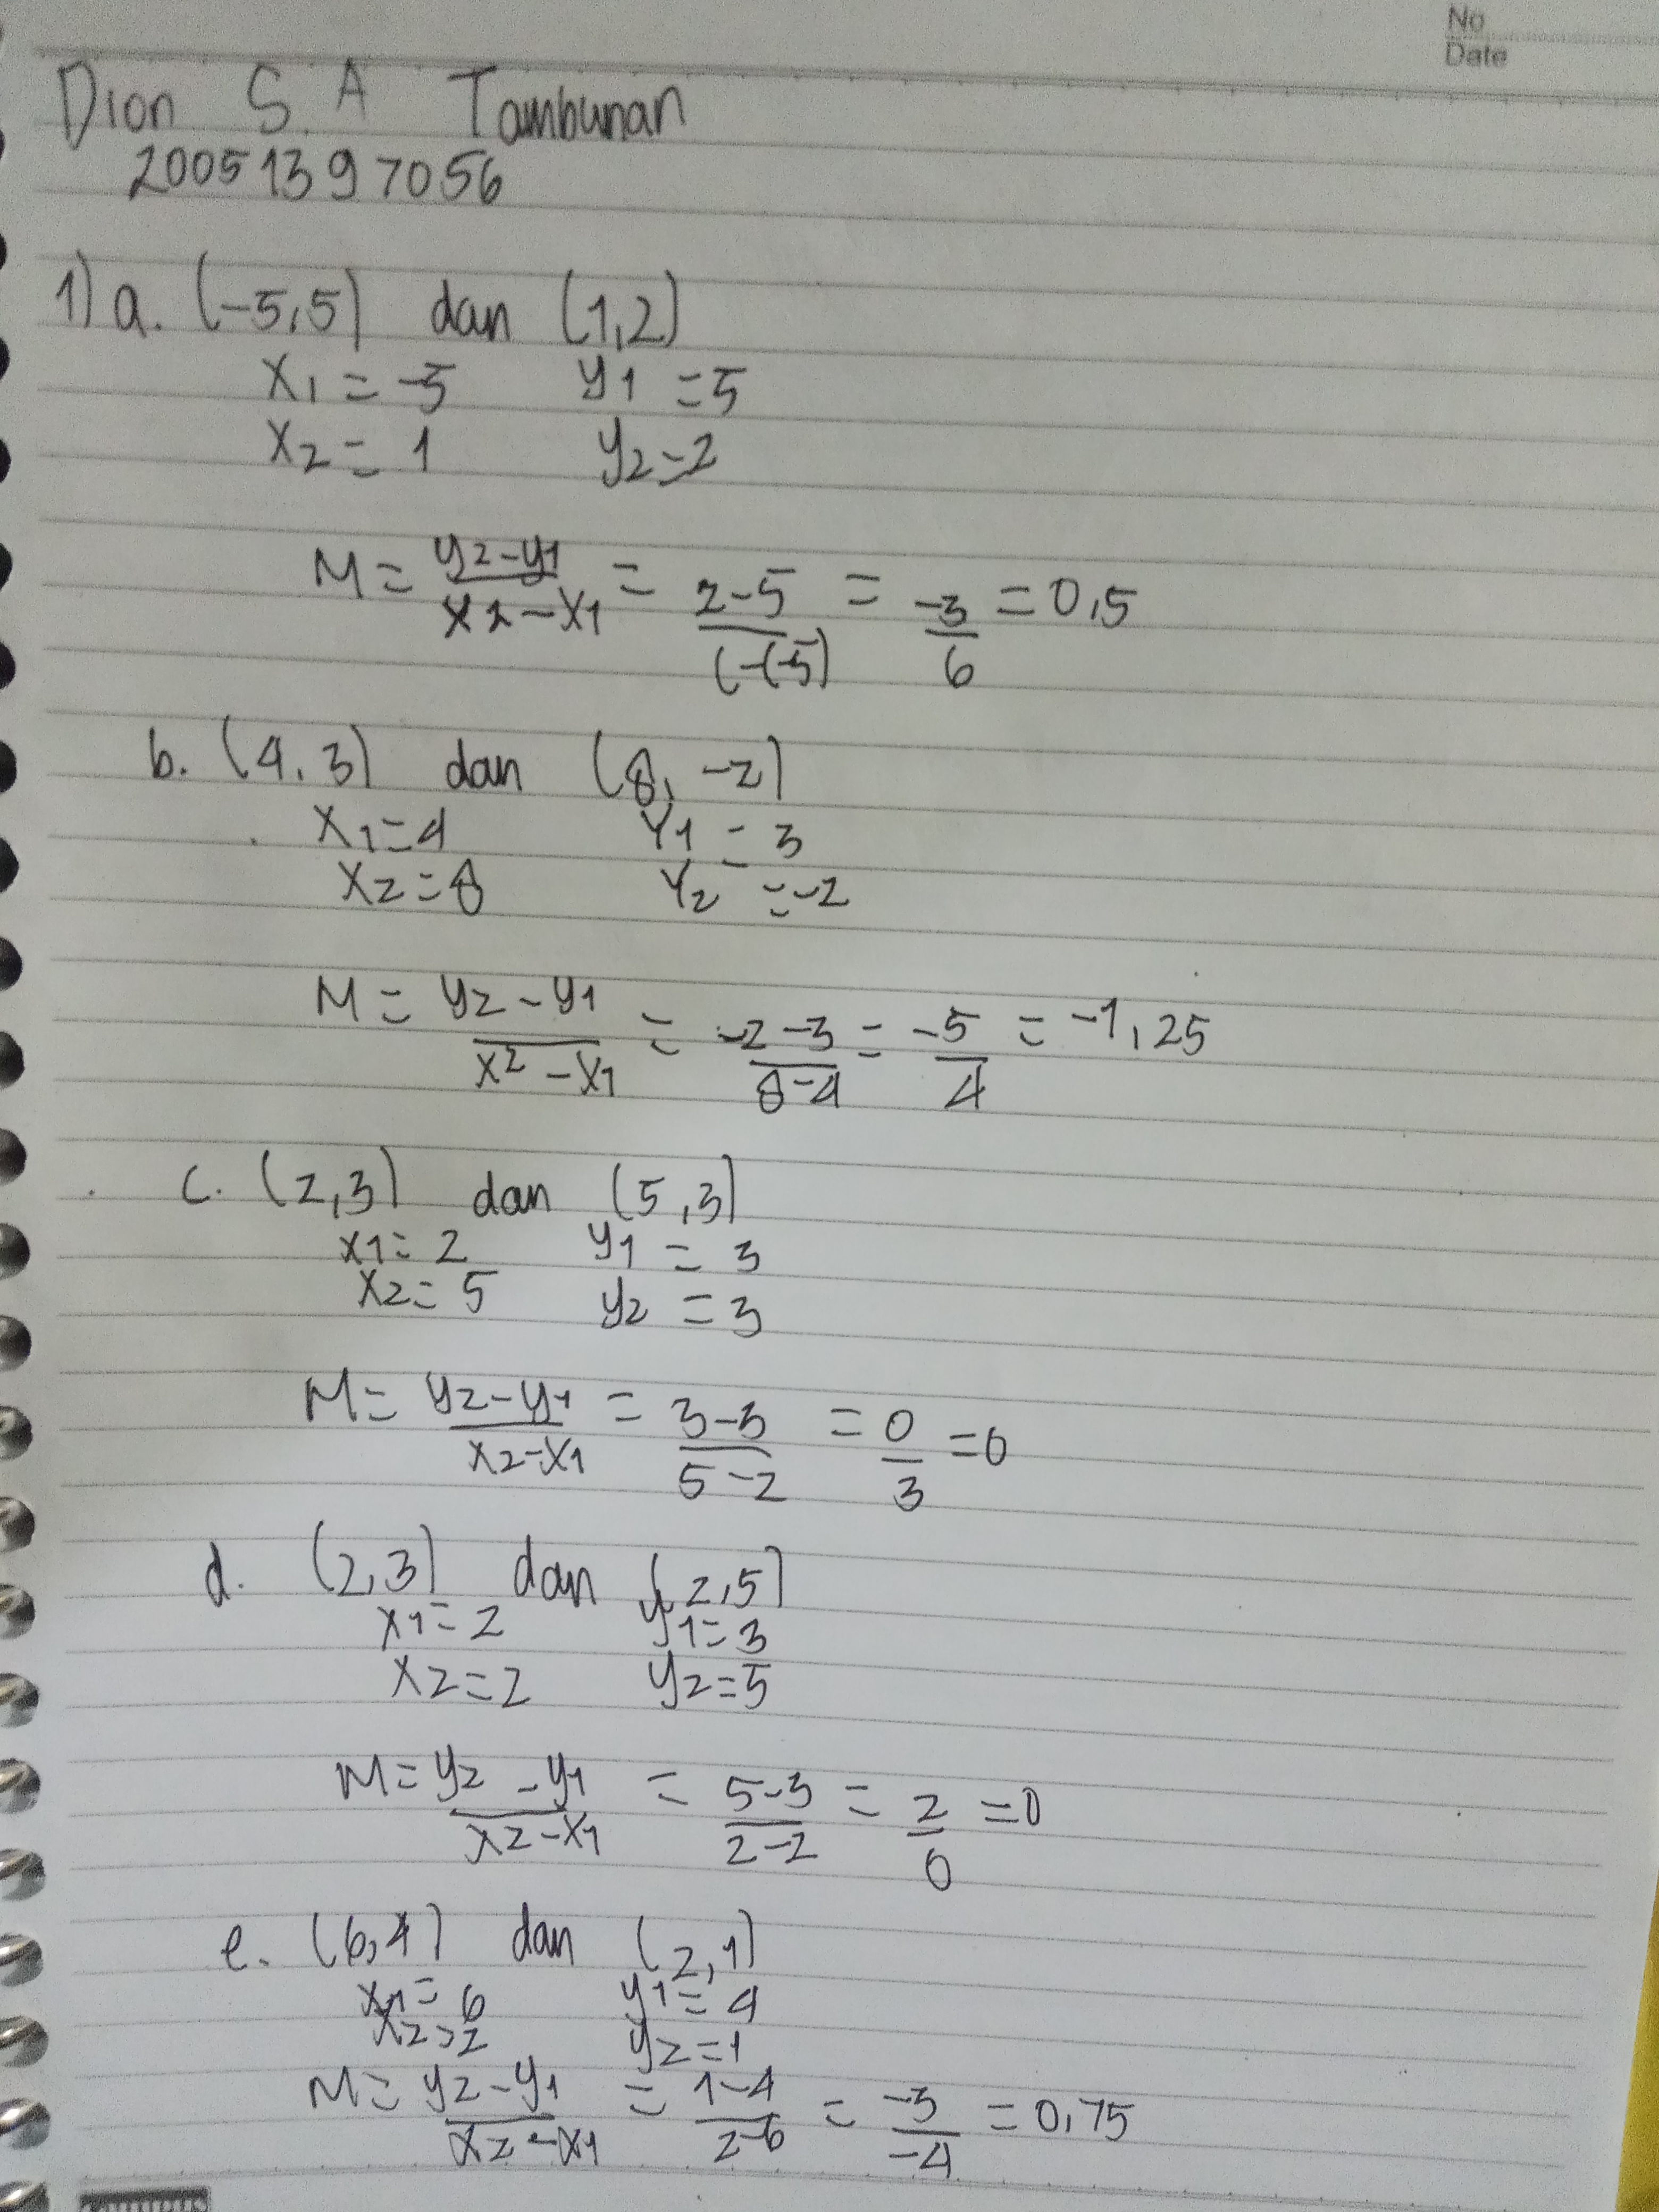 No
Date
Dion S.A Tambunan
20051397056
1) a. (-5,5) dan (1,2)
x1 = -5 y1 = 5
x2 = 1 y2 = 2
M = y2-y1/x2-x1 = 2-5/(-(-5) = -3/6 = 0,5
b. (4,3) dan (8,-2)
x1=4 y1 = 3
x2=8 y2 = -2
M = y2-y1/x2-x1 = -2-3/8-4 = -5/4 = -1,25
c. (2,3) dan (5,3)
x1=2 y1 = 3
x2=5 y2 = 3
M = y2-y1/x2-x1 = 3-3/5-2 = 0/3 = 0
d. (2,3) dan (2,5)
x1=2 y1=3
x2=2 y2=5
M = y2-y1/x2-x1 = 5-3/2-2 = 2/0 = 0
e. (6,4) dan (2,1)
x1=6 y1=4
x2=2 y2=1
M = y2-y1/x2-x1 = 1-4/2-6 = -3/-4 = 0,75